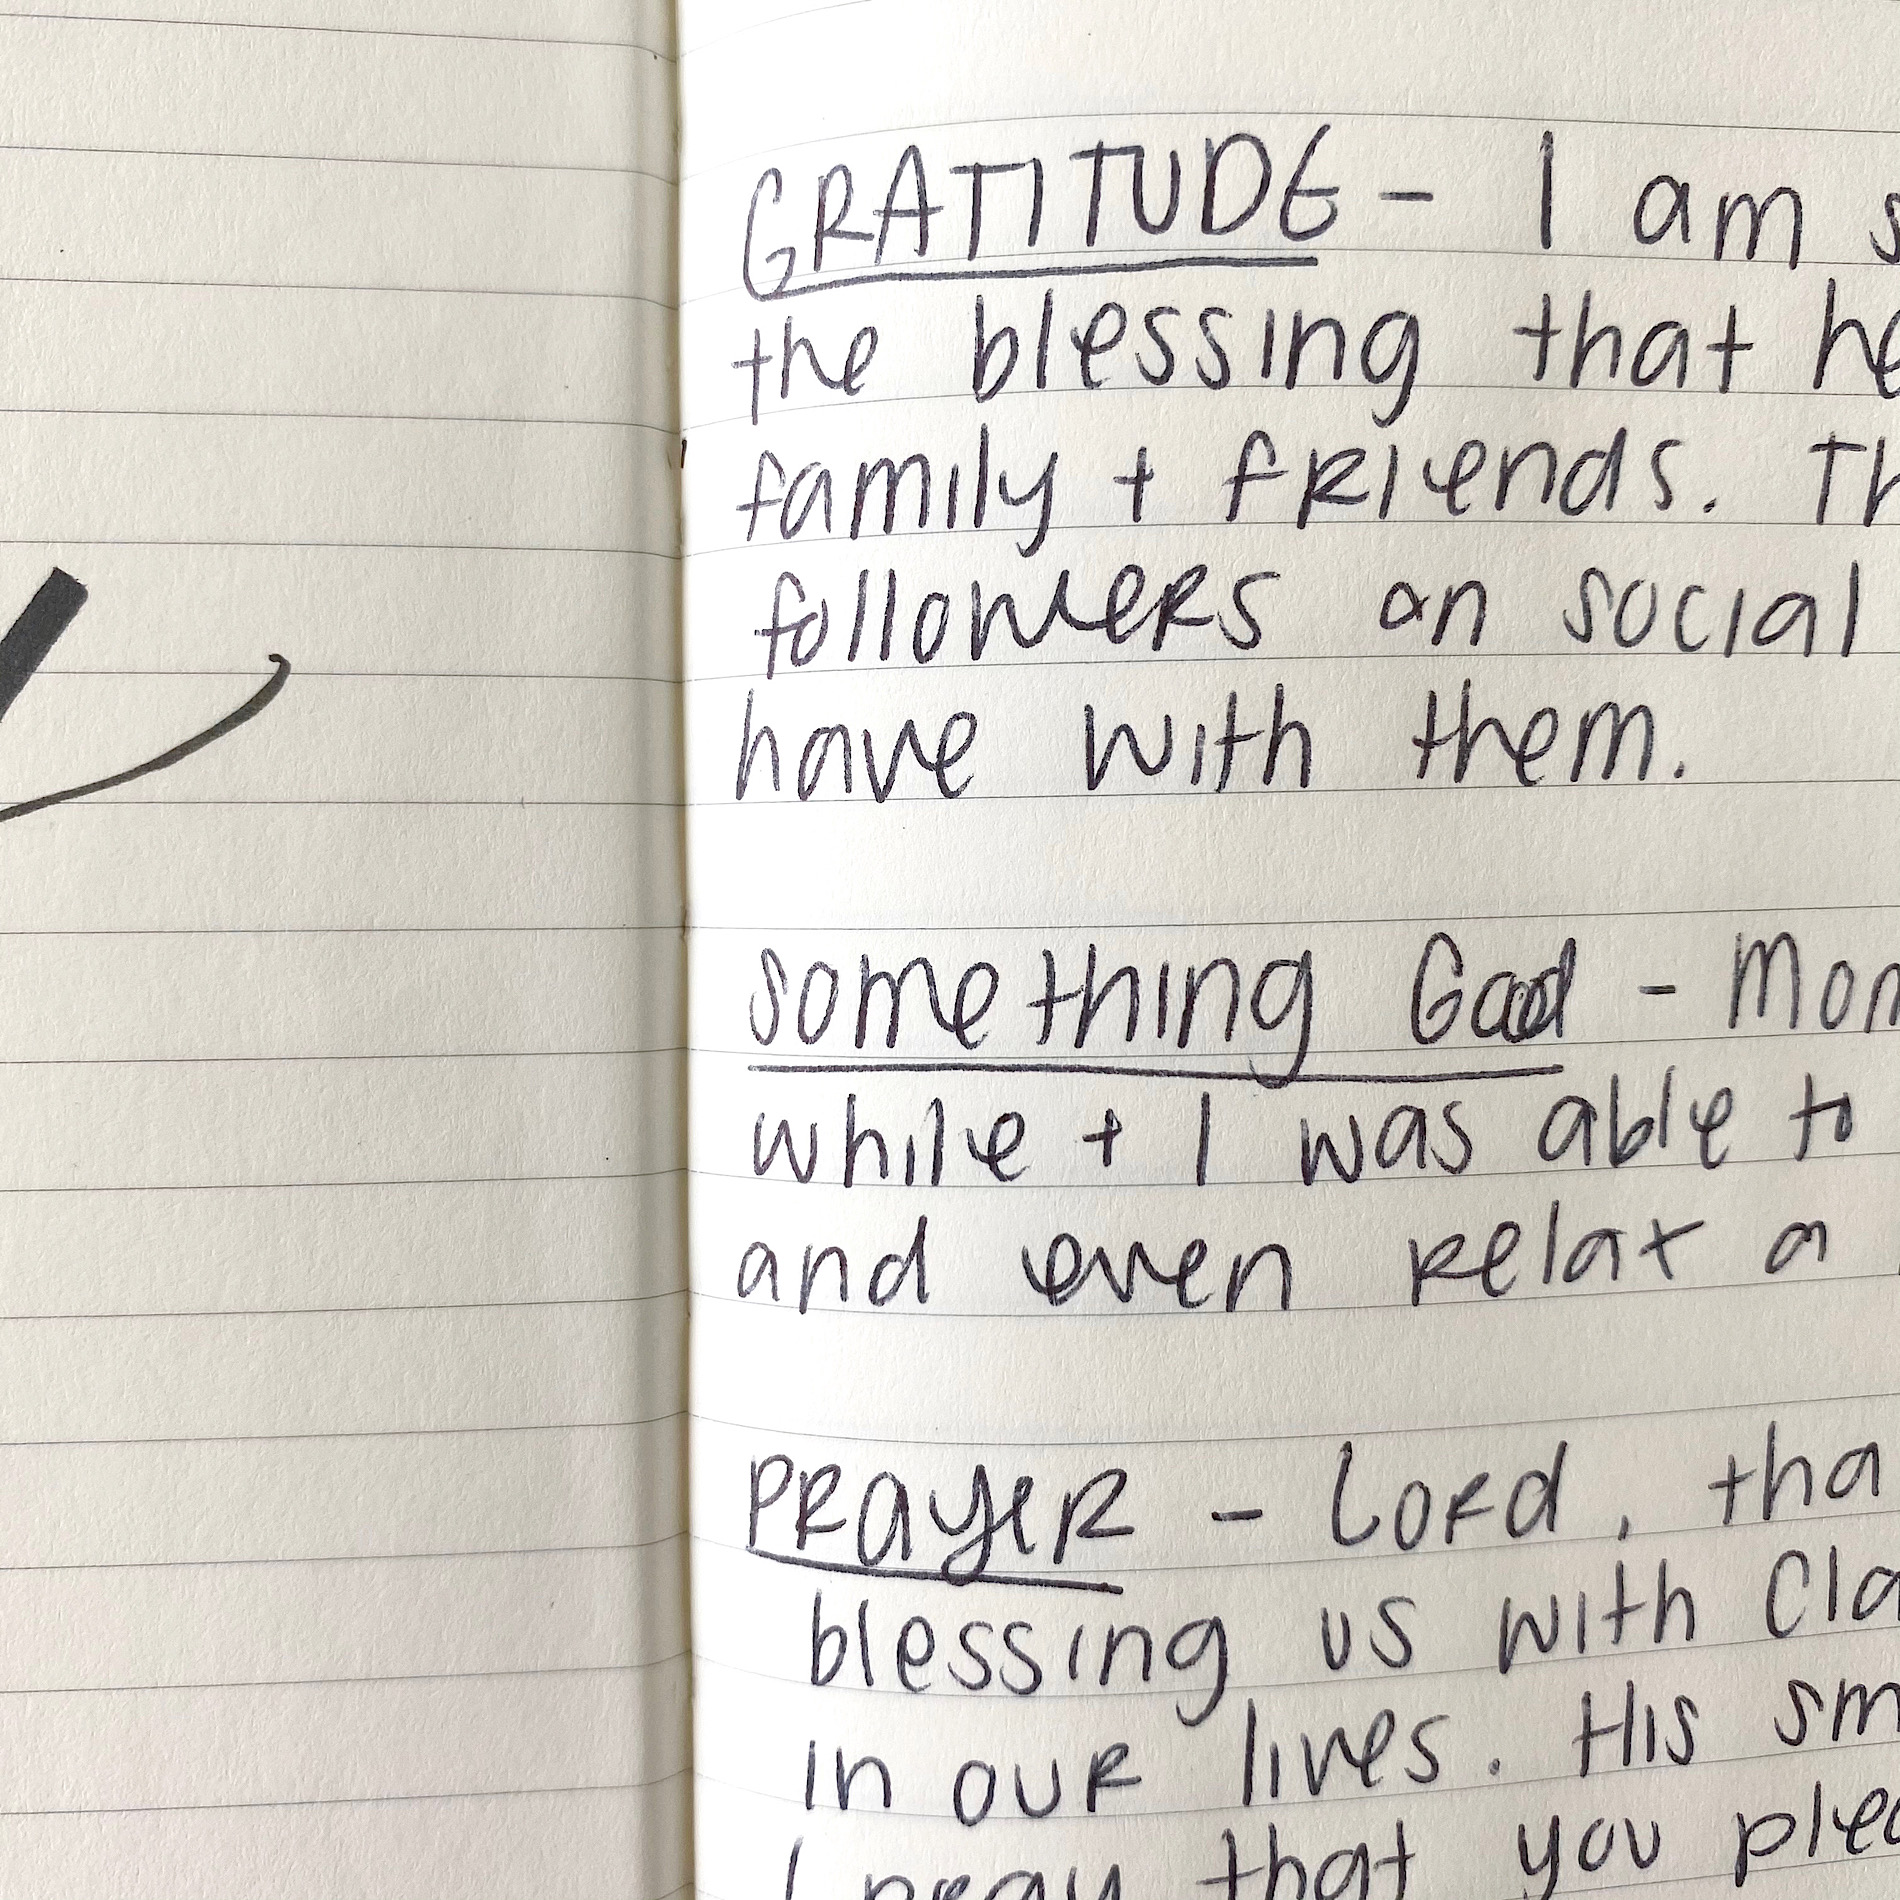 GRATITUDE - I am s
the blessing that he
family + friends. Th
followers on social
have with them.
Something Good - Mon
while + I was able to
and even relax a
PRayeR - Lord, tha
blessing us with Cla
in our lives. His sm
I pray that you plea